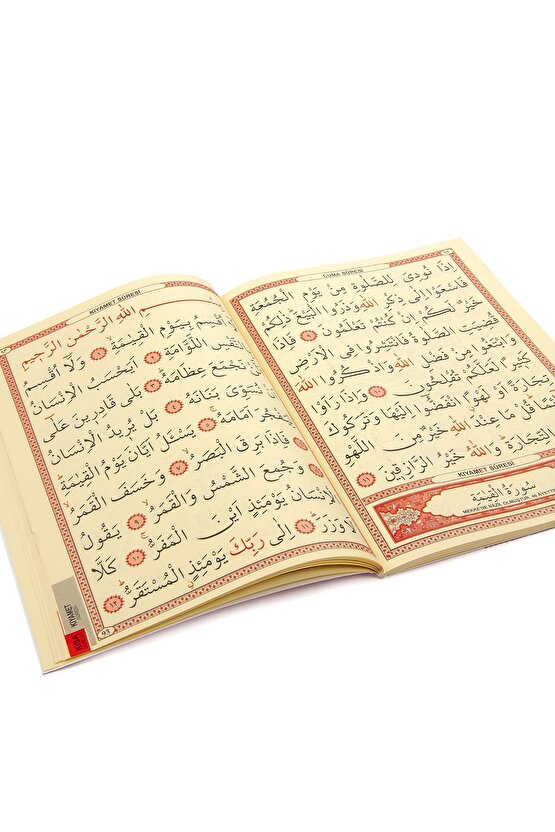 CUMA SÛRESİ
اِذَا نُودِىَ لِلصَّلٰوةِ مِنْ يَوْمِ الْجُمُعَةِ
فَاسْعَوْا اِلٰى ذِكْرِ اللّٰهِ وَذَرُوا الْبَيْعَ ذٰلِكُمْ
خَيْرٌ لَكُمْ اِنْ كُنْتُمْ تَعْلَمُونَ ٩ فَاِذَا
قُضِيَتِ الصَّلٰوةُ فَانْتَشِرُوا فِى الْاَرْضِ
وَابْتَغُوا مِنْ فَضْلِ اللّٰهِ وَاذْكُرُوا اللّٰهَ
كَثِيرًا لَعَلَّكُمْ تُفْلِحُونَ ١٠ وَاِذَا رَاَوْا
تِجَارَةً اَوْ لَهْوًا انْفَضُّوا اِلَيْهَا وَتَرَكُوكَ
قُلْ مَا عِنْدَ اللّٰهِ خَيْرٌ مِنَ اللَّهْوِ
التِّجَارَةِ وَاللّٰهُ خَيْرُ الرَّازِقِينَ ١١
KIYAMET SÛRESİ
سُورَةُ الْقِيٰمَةِ
MEKKE'DE NAZİL OLMUŞTUR. 40 AYETTİR
KIYAMET SÛRESİ
اللّٰهِ الرَّحْمٰنِ الرَّحِيمِ
اُقْسِمُ بِيَوْمِ الْقِيٰمَةِ ١ وَلَا اُقْسِمُ
بِالنَّفْسِ اللَّوَّامَةِ ٢ اَيَحْسَبُ الْاِنْسَانُ
نَجْمَعَ عِظَامَهُ ٣ بَلٰى قَادِرِينَ عَلٰى
نُسَوِّىَ بَنَانَهُ ٤ بَلْ يُرِيدُ الْاِنْسَانُ
لِيَفْجُرَ اَمَامَهُ ٥ يَسْئَلُ اَيَّانَ يَوْمُ الْقِيٰمَةِ
٦ فَاِذَا بَرِقَ الْبَصَرُ ٧ وَخَسَفَ الْقَمَرُ
٨ وَجُمِعَ الشَّمْسُ وَالْقَمَرُ ٩ يَقُولُ
الْاِنْسَانُ يَوْمَئِذٍ اَيْنَ الْمَفَرُّ ١٠ كَلَّا
لَا وَزَرَ ١١ اِلٰى رَبِّكَ يَوْمَئِذٍ الْمُسْتَقَرُّ ١٢
93
KIYAMET
KISA